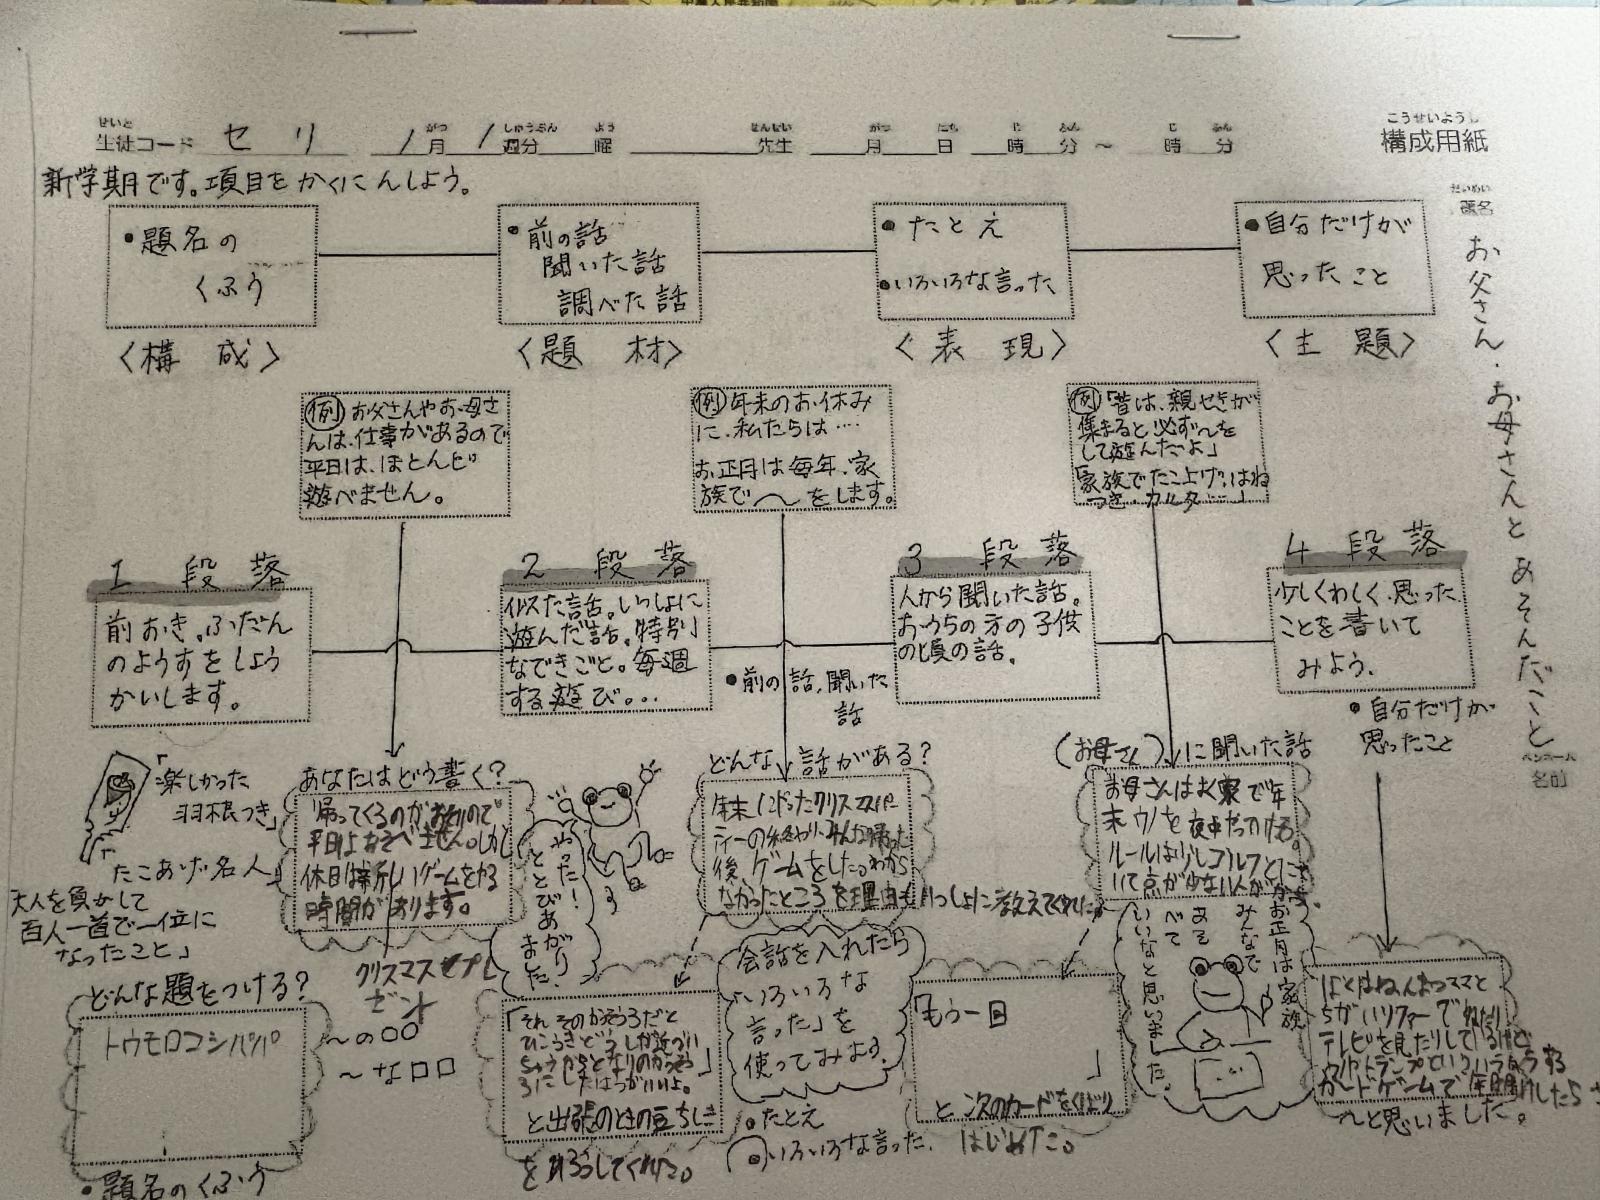 中華人民共和国
せいと がつ しゅうぶん よう せんせい がつ にち じ ふん じ ふん
生徒コード セリ 1月 1週分 曜 先生 月 日 時 分 ~ 時 分
こうせいようし
構成用紙
新学期です。項目をかくにんしよう。
だいめい
題名
お父さん・お母さんとあそんだこと
ペンネーム
名前
・題名の
くふう
〈構 成〉
・前の話
聞いた話
調べた話
〈題 材〉
・たとえ
・いろいろな言った
〈表 現〉
・自分だけが
思ったこと
〈主 題〉
例 お父さんやお母さ
んは、仕事があるので
平日は、ほとんど
遊べません。
例 年末のお休み
に、私たらは‥‥
お正月は毎年、家
族で〜をします。
例「昔は、親せきが
集まると必ず〜を
して遊んだよ」
「家族でたこ上げ、はね
つき・カルタ‥‥」
1 段 落
前おき。ふだん
のようすをしょう
かいします。
2 段 落
似た話。いっしょに
遊んだ話。特別
なできごと。毎週
する遊び。…
・前の話、聞いた
話
3 段 落
人から聞いた話。
おうちの方の子供
の頃の話。
4 段 落
少しくわしく、思った
ことを書いて
みよう。
・自分だけが
思ったこと
「楽しかった
羽根つき」
たこあげ名人」
大人を負かして
百人一首で一位に
なったこと」
あなたはどう書く?
帰ってくるのがおそいので
平日はあそべません。しかし
休日は新しいゲームをやる
時間があります。
クリスマスでプレ
ゼント
やった!
ととびあがり
ました。
どんな話がある?
年末にやったクリスマスパー
ティーの終わり、みんな帰った
後、ゲームをした。わから
なかったところを理由もいっしょに教えてくれた
(お母さん)に聞いた話
お母さんはお家で年
末ウノを夜中やってける。
ルールは少しゴルフとにて
いて点が少ない人が
お正月は家族
みんなで
あそ
べて
いいなと思いました。
どんな題をつける?
トウモロコシパパ
〜の○○
〜な□□
・題名のくふう
「それ そのかそうろだと
ひこうきどうしが近づい
ちゃうからとなりのかっそう
ろにしたほうがいいよ。」
と出張のときの豆ちしき
をひろうしてくれた。
会話を入れたら
「いろいろな
言った」を
使ってみよう。
・たとえ
・いろいろな言った。
「もう一回
」
と次のカードをくばり
はじめた。
ぼくはねんまつママと
ちがいソファーでねたり
テレビを見たりしているけど
ウノやトランプという
カードゲームで
〜と思いました。